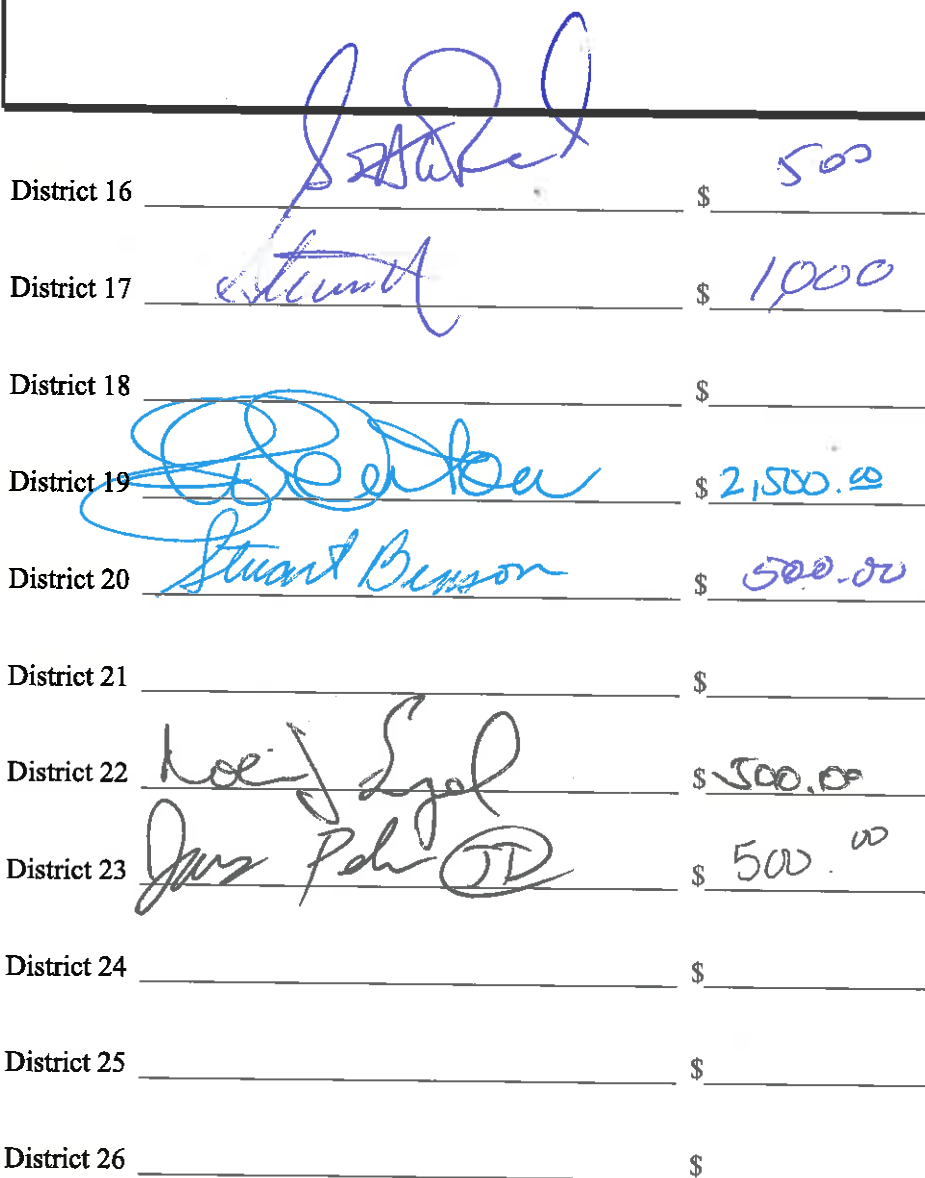 District 16 $ 500
District 17 $ 1,000
District 18 $
District 19 $ 2,500.00
District 20 Stuart Benson $ 500.00
District 21 $
District 22 $ 500.00
District 23 $ 500.00
District 24 $
District 25 $
District 26 $